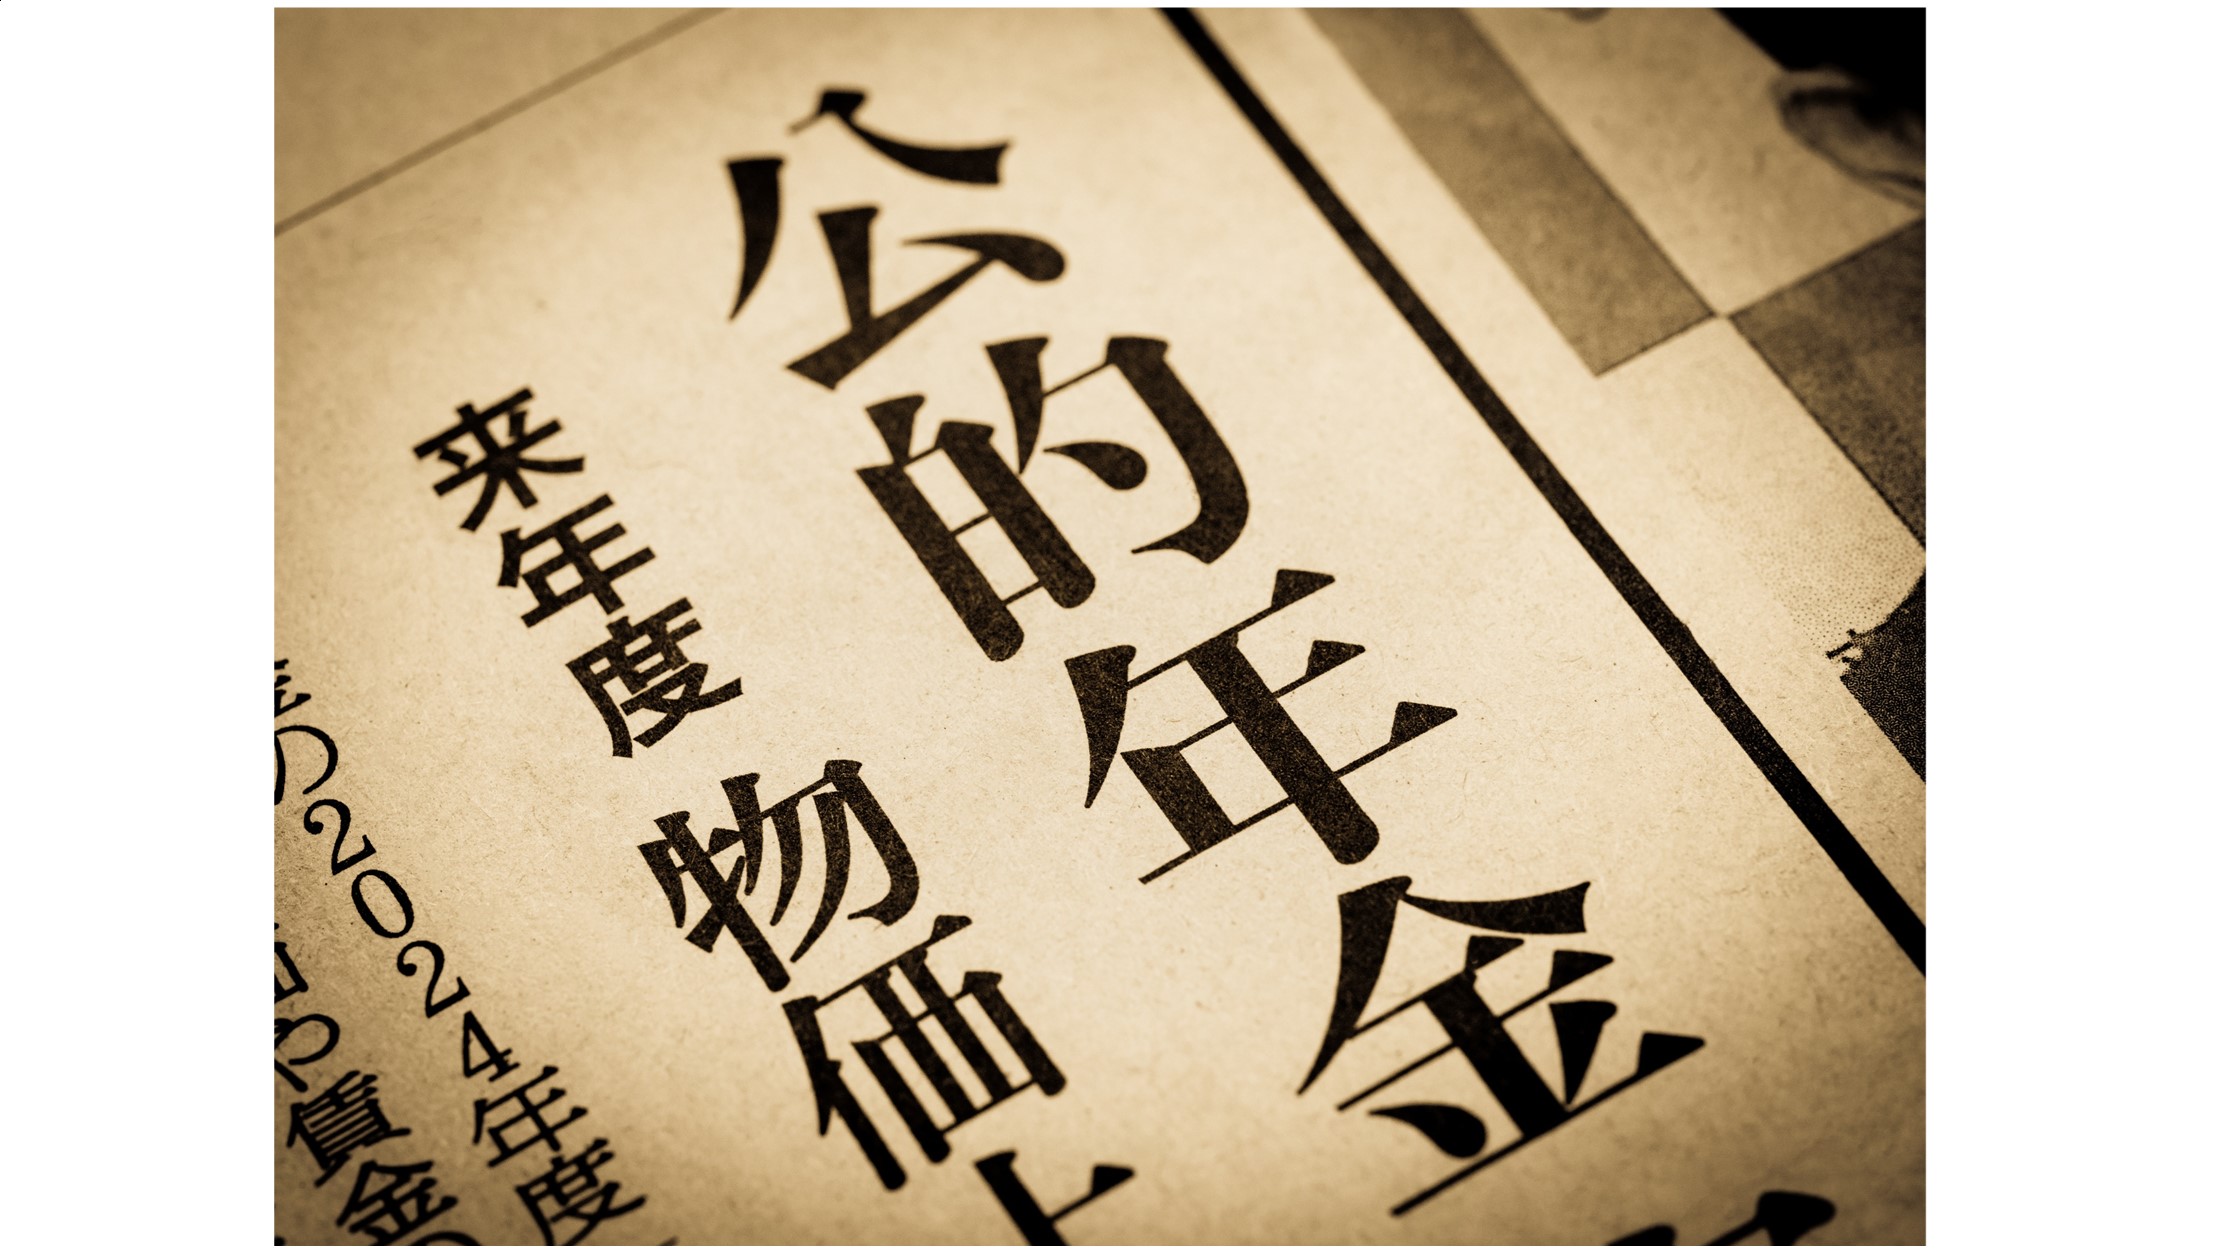 公的年金
来年度
物価上
の2024年度
や賃金の